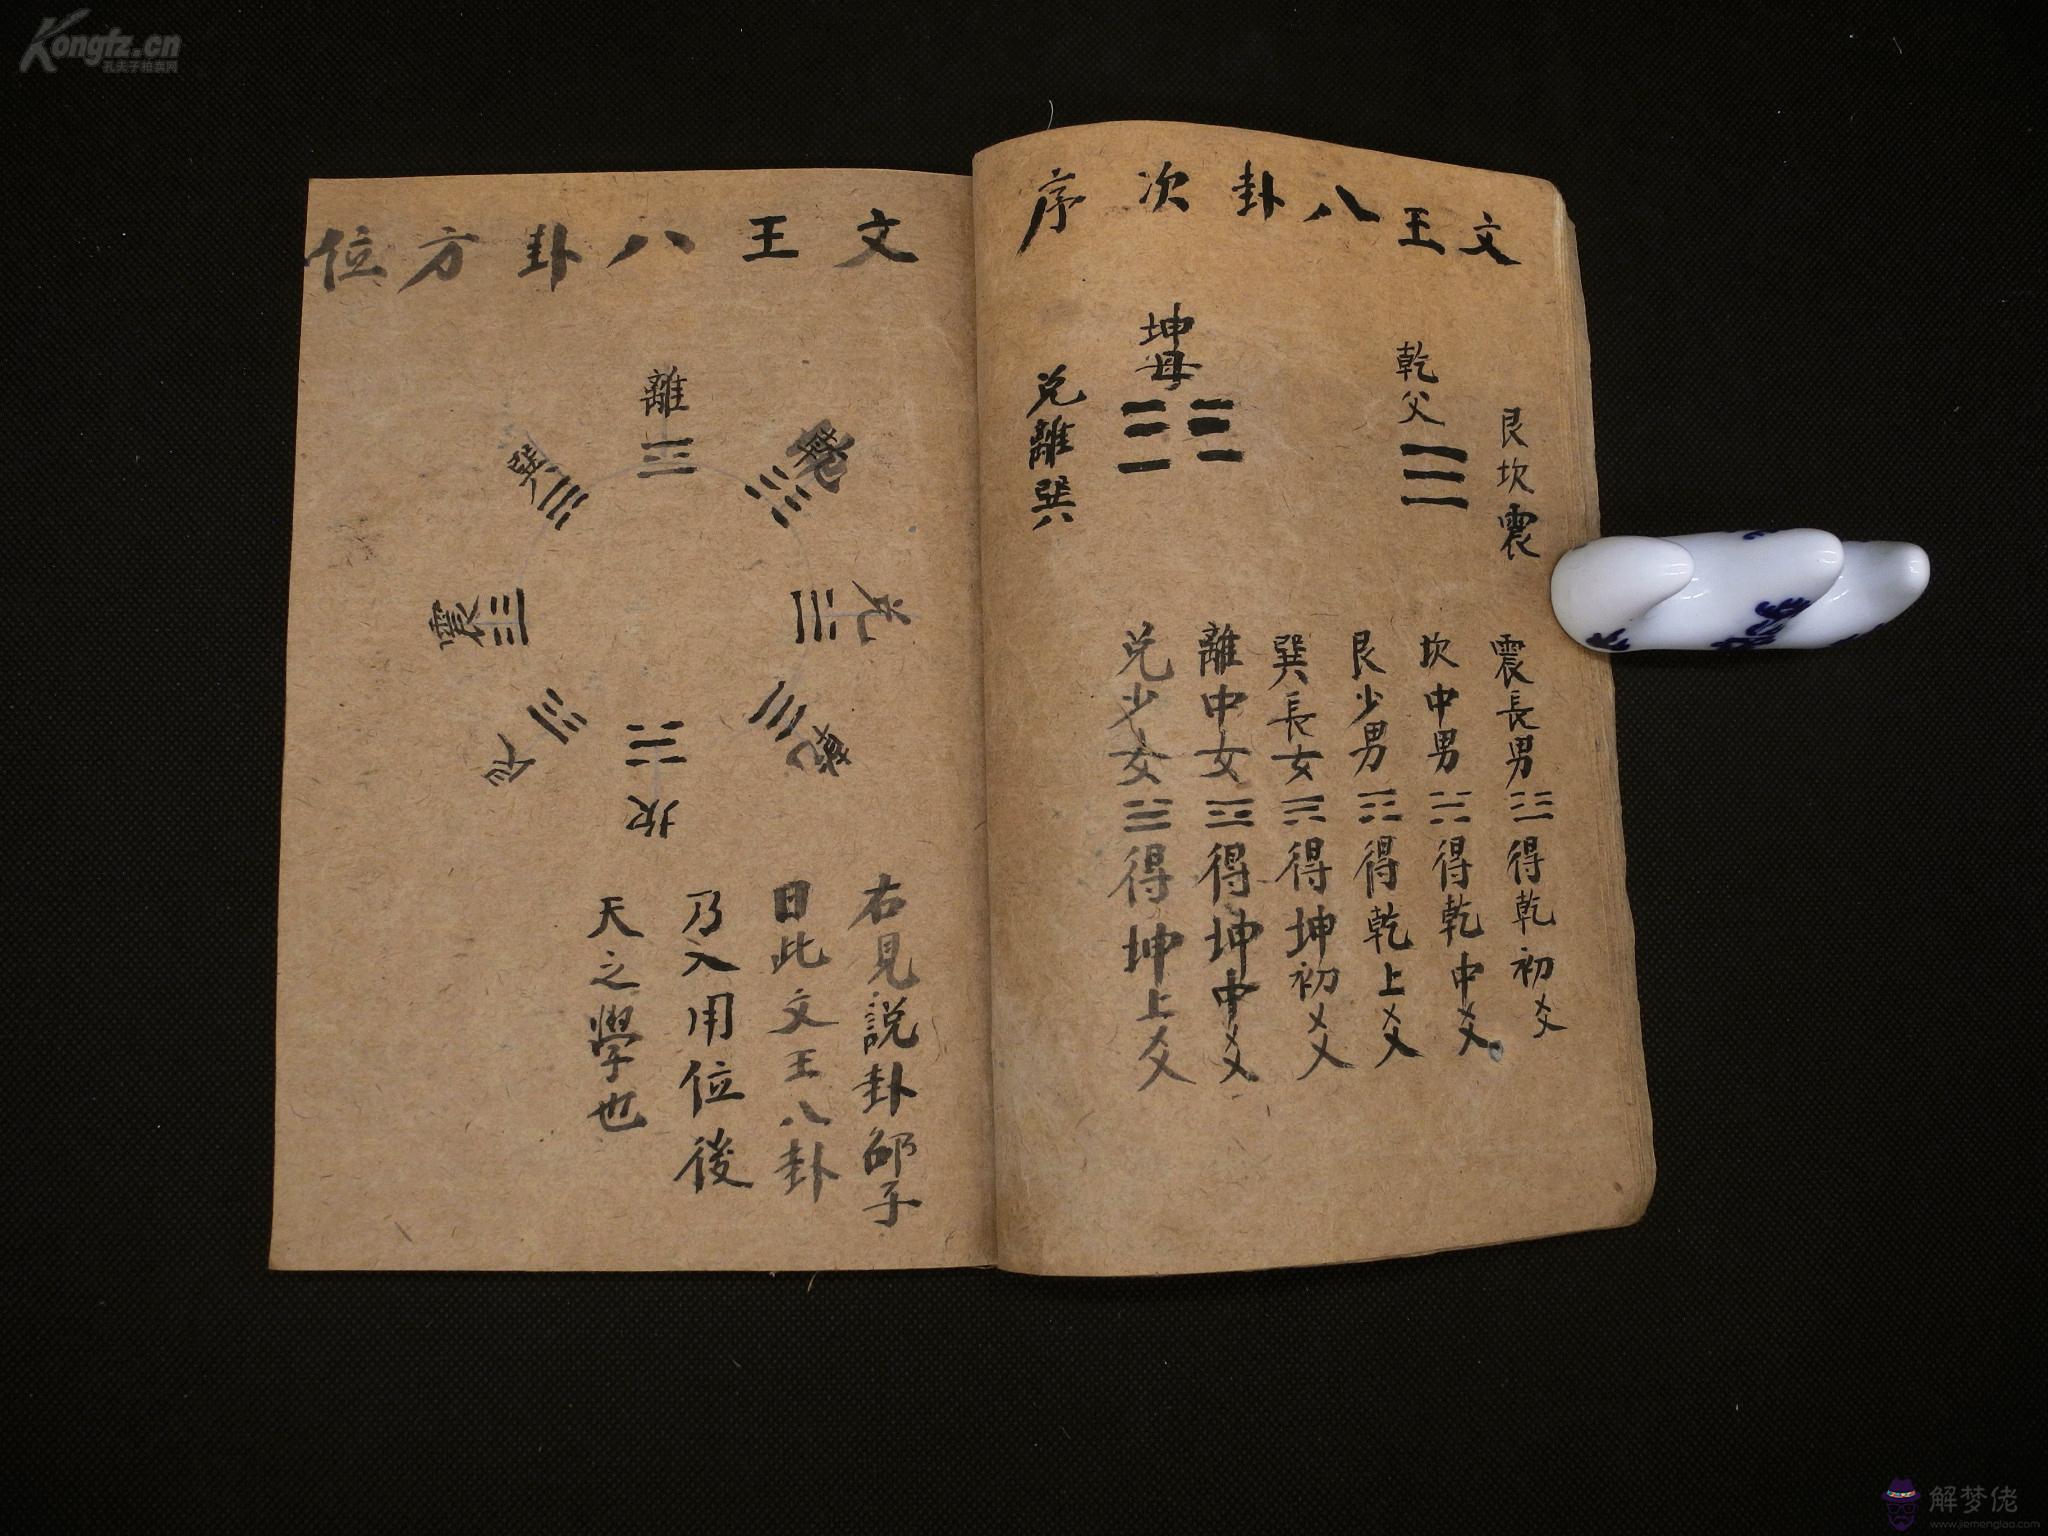 文王八卦次序
艮坎震
乾父
坤母
兌離巽
震長男☳得乾初爻
坎中男☵得乾中爻
艮少男☶得乾上爻
巽長女☴得坤初爻
離中女☲得坤中爻
兌少女☱得坤上爻
文王八卦方位
離
巽
震
兌
乾
坎
右見說卦邵子
曰此文王八卦
乃入用位後
天之學也
Kongfz.cn
孔夫子拍卖网
解梦佬
www.jiemenglao.com